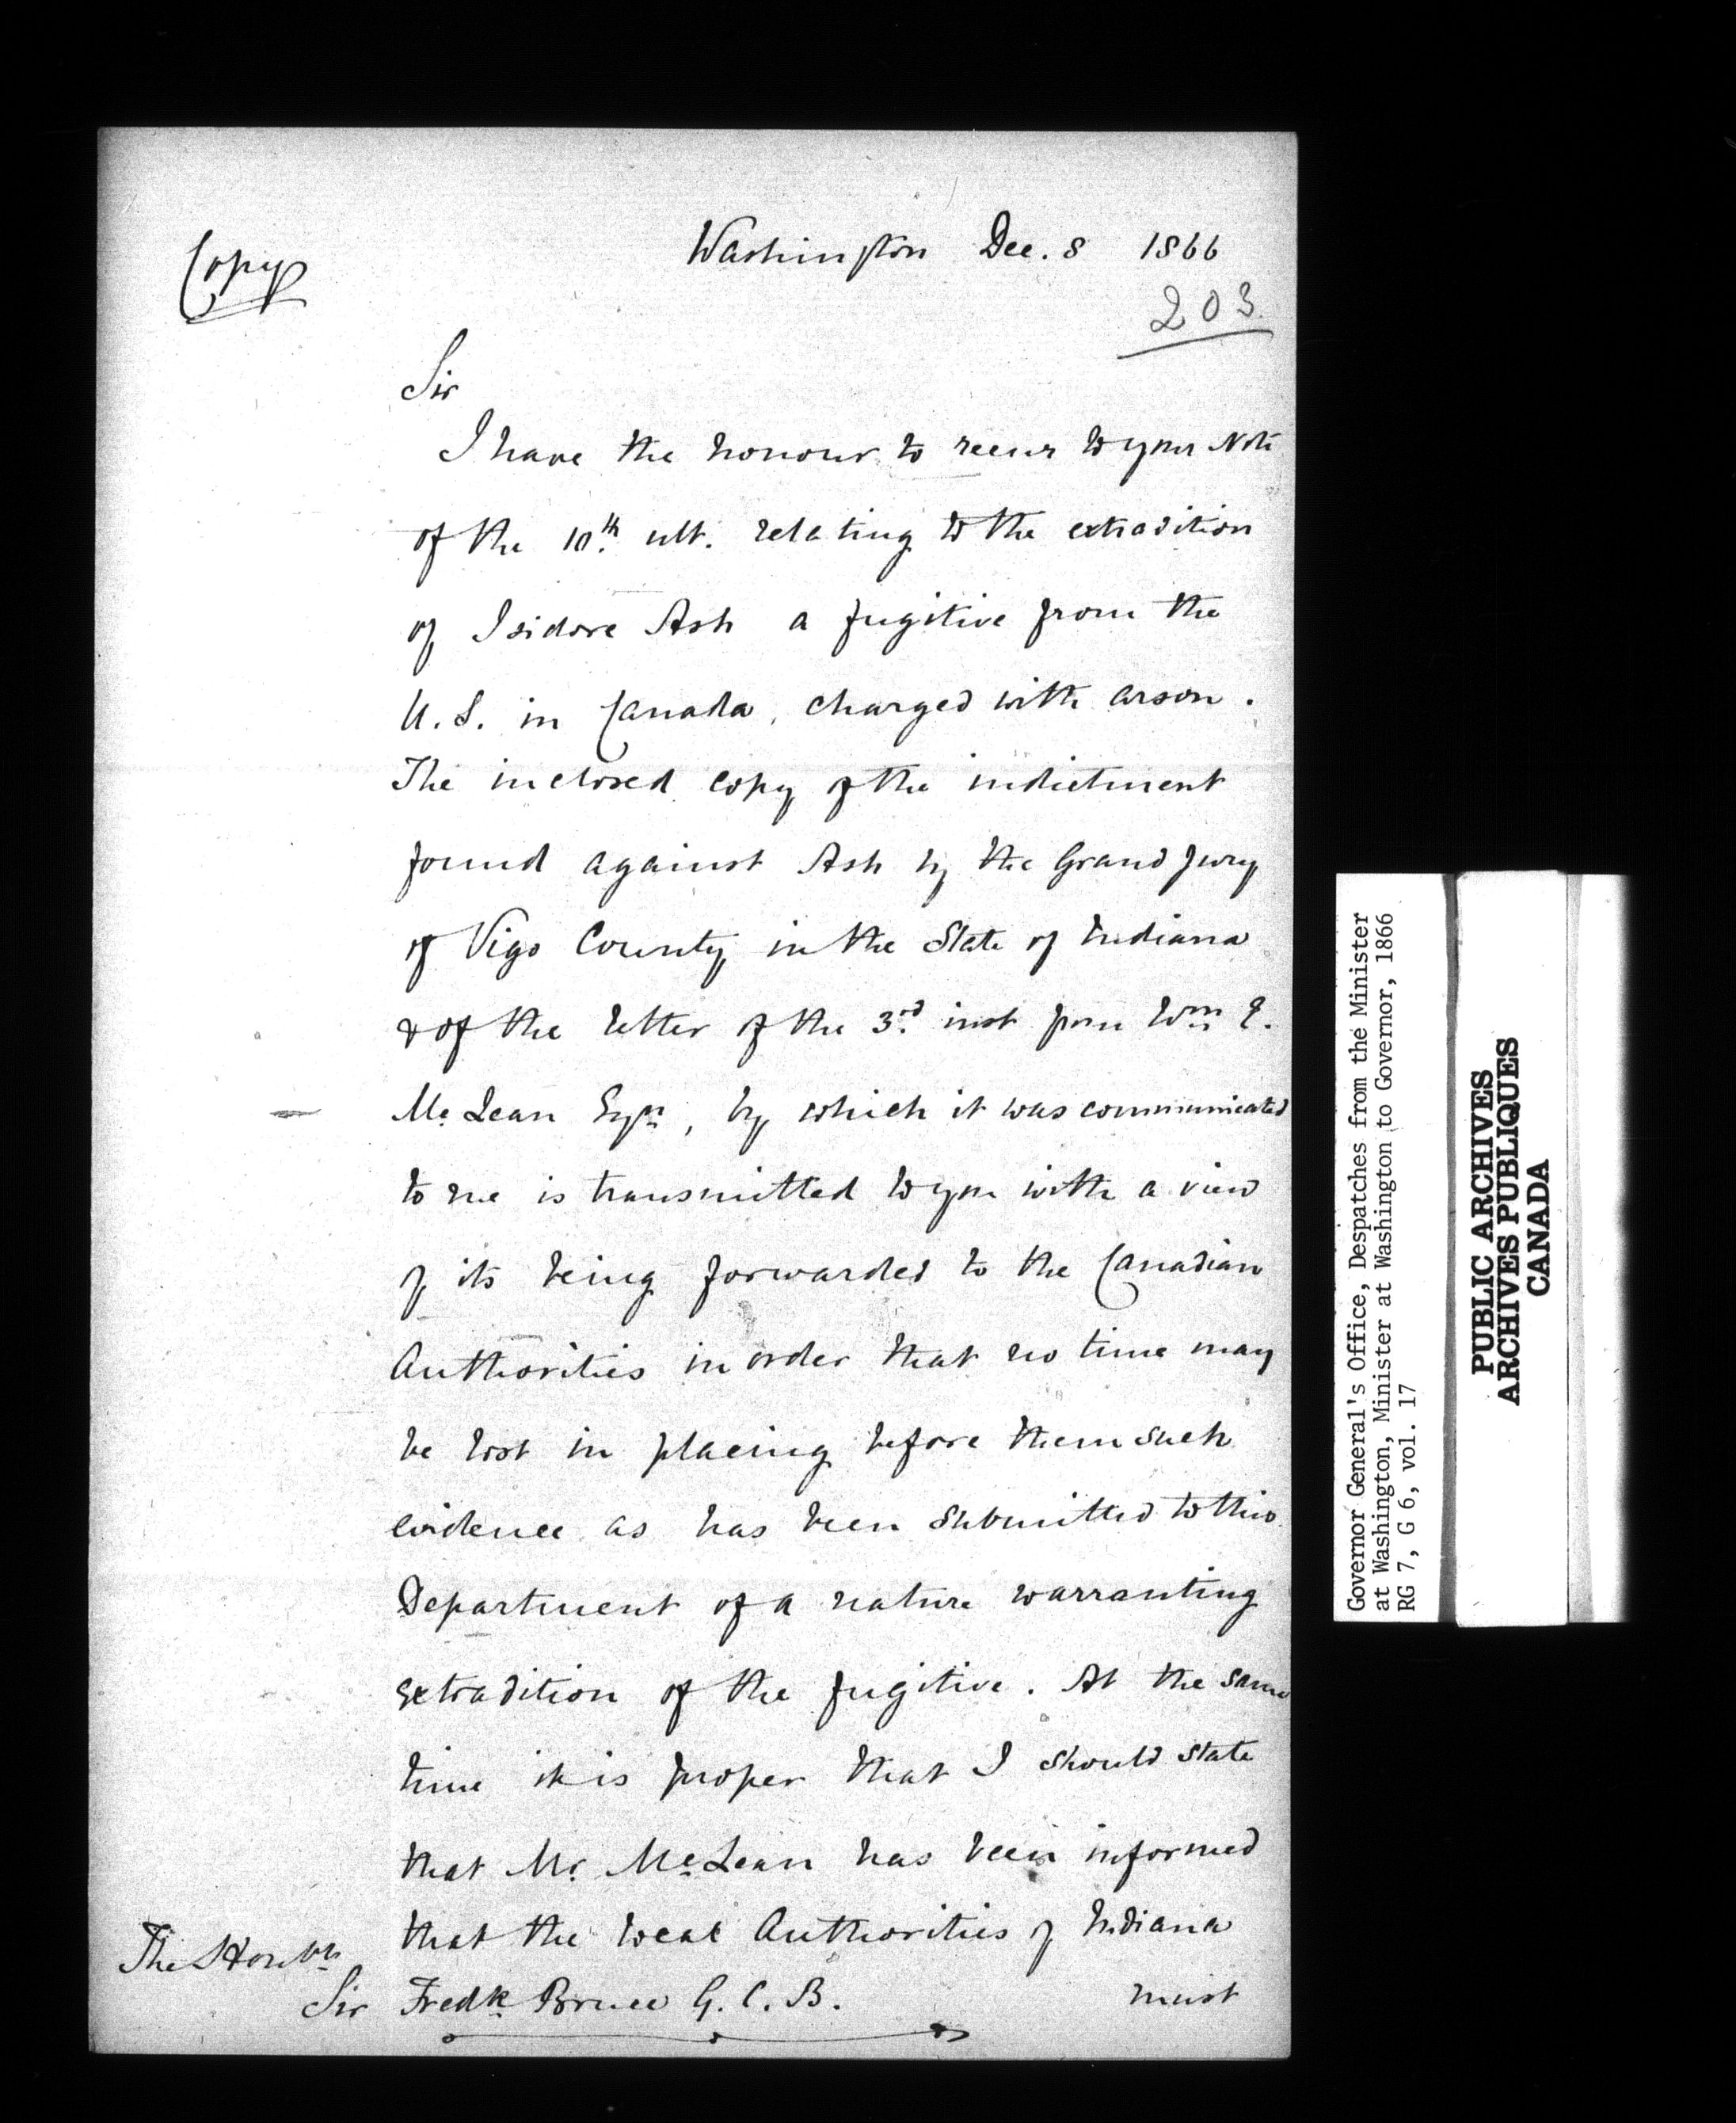 Copy
Washington Dec. 8 1866
203
Sir
I have the honour to recur to your Note
of the 10th. ult. relating to the extradition
of Isidore Ash a fugitive from the
U.S. in Canada, charged with arson.
The inclosed copy of the indictment
found against Ash by the Grand Jury
of Vigo County in the State of Indiana
& of the letter of the 3rd. inst from Wm E.
McLean Esqre, by which it was communicated
to me is transmitted to you with a view
of its being forwarded to the Canadian
Authorities in order that no time may
be lost in placing before them such
evidence as has been submitted to this
Department of a nature warranting
extradition of the fugitive. At the same
time it is proper that I should state
that Mr. McLean has been informed
that the local Authorities of Indiana
must
The Honble
Sir Fredk Bruce G.C.B.
Governor General's Office, Despatches from the Minister
at Washington, Minister at Washington to Governor, 1866
RG 7, G 6, vol. 17
PUBLIC ARCHIVES
ARCHIVES PUBLIQUES
CANADA